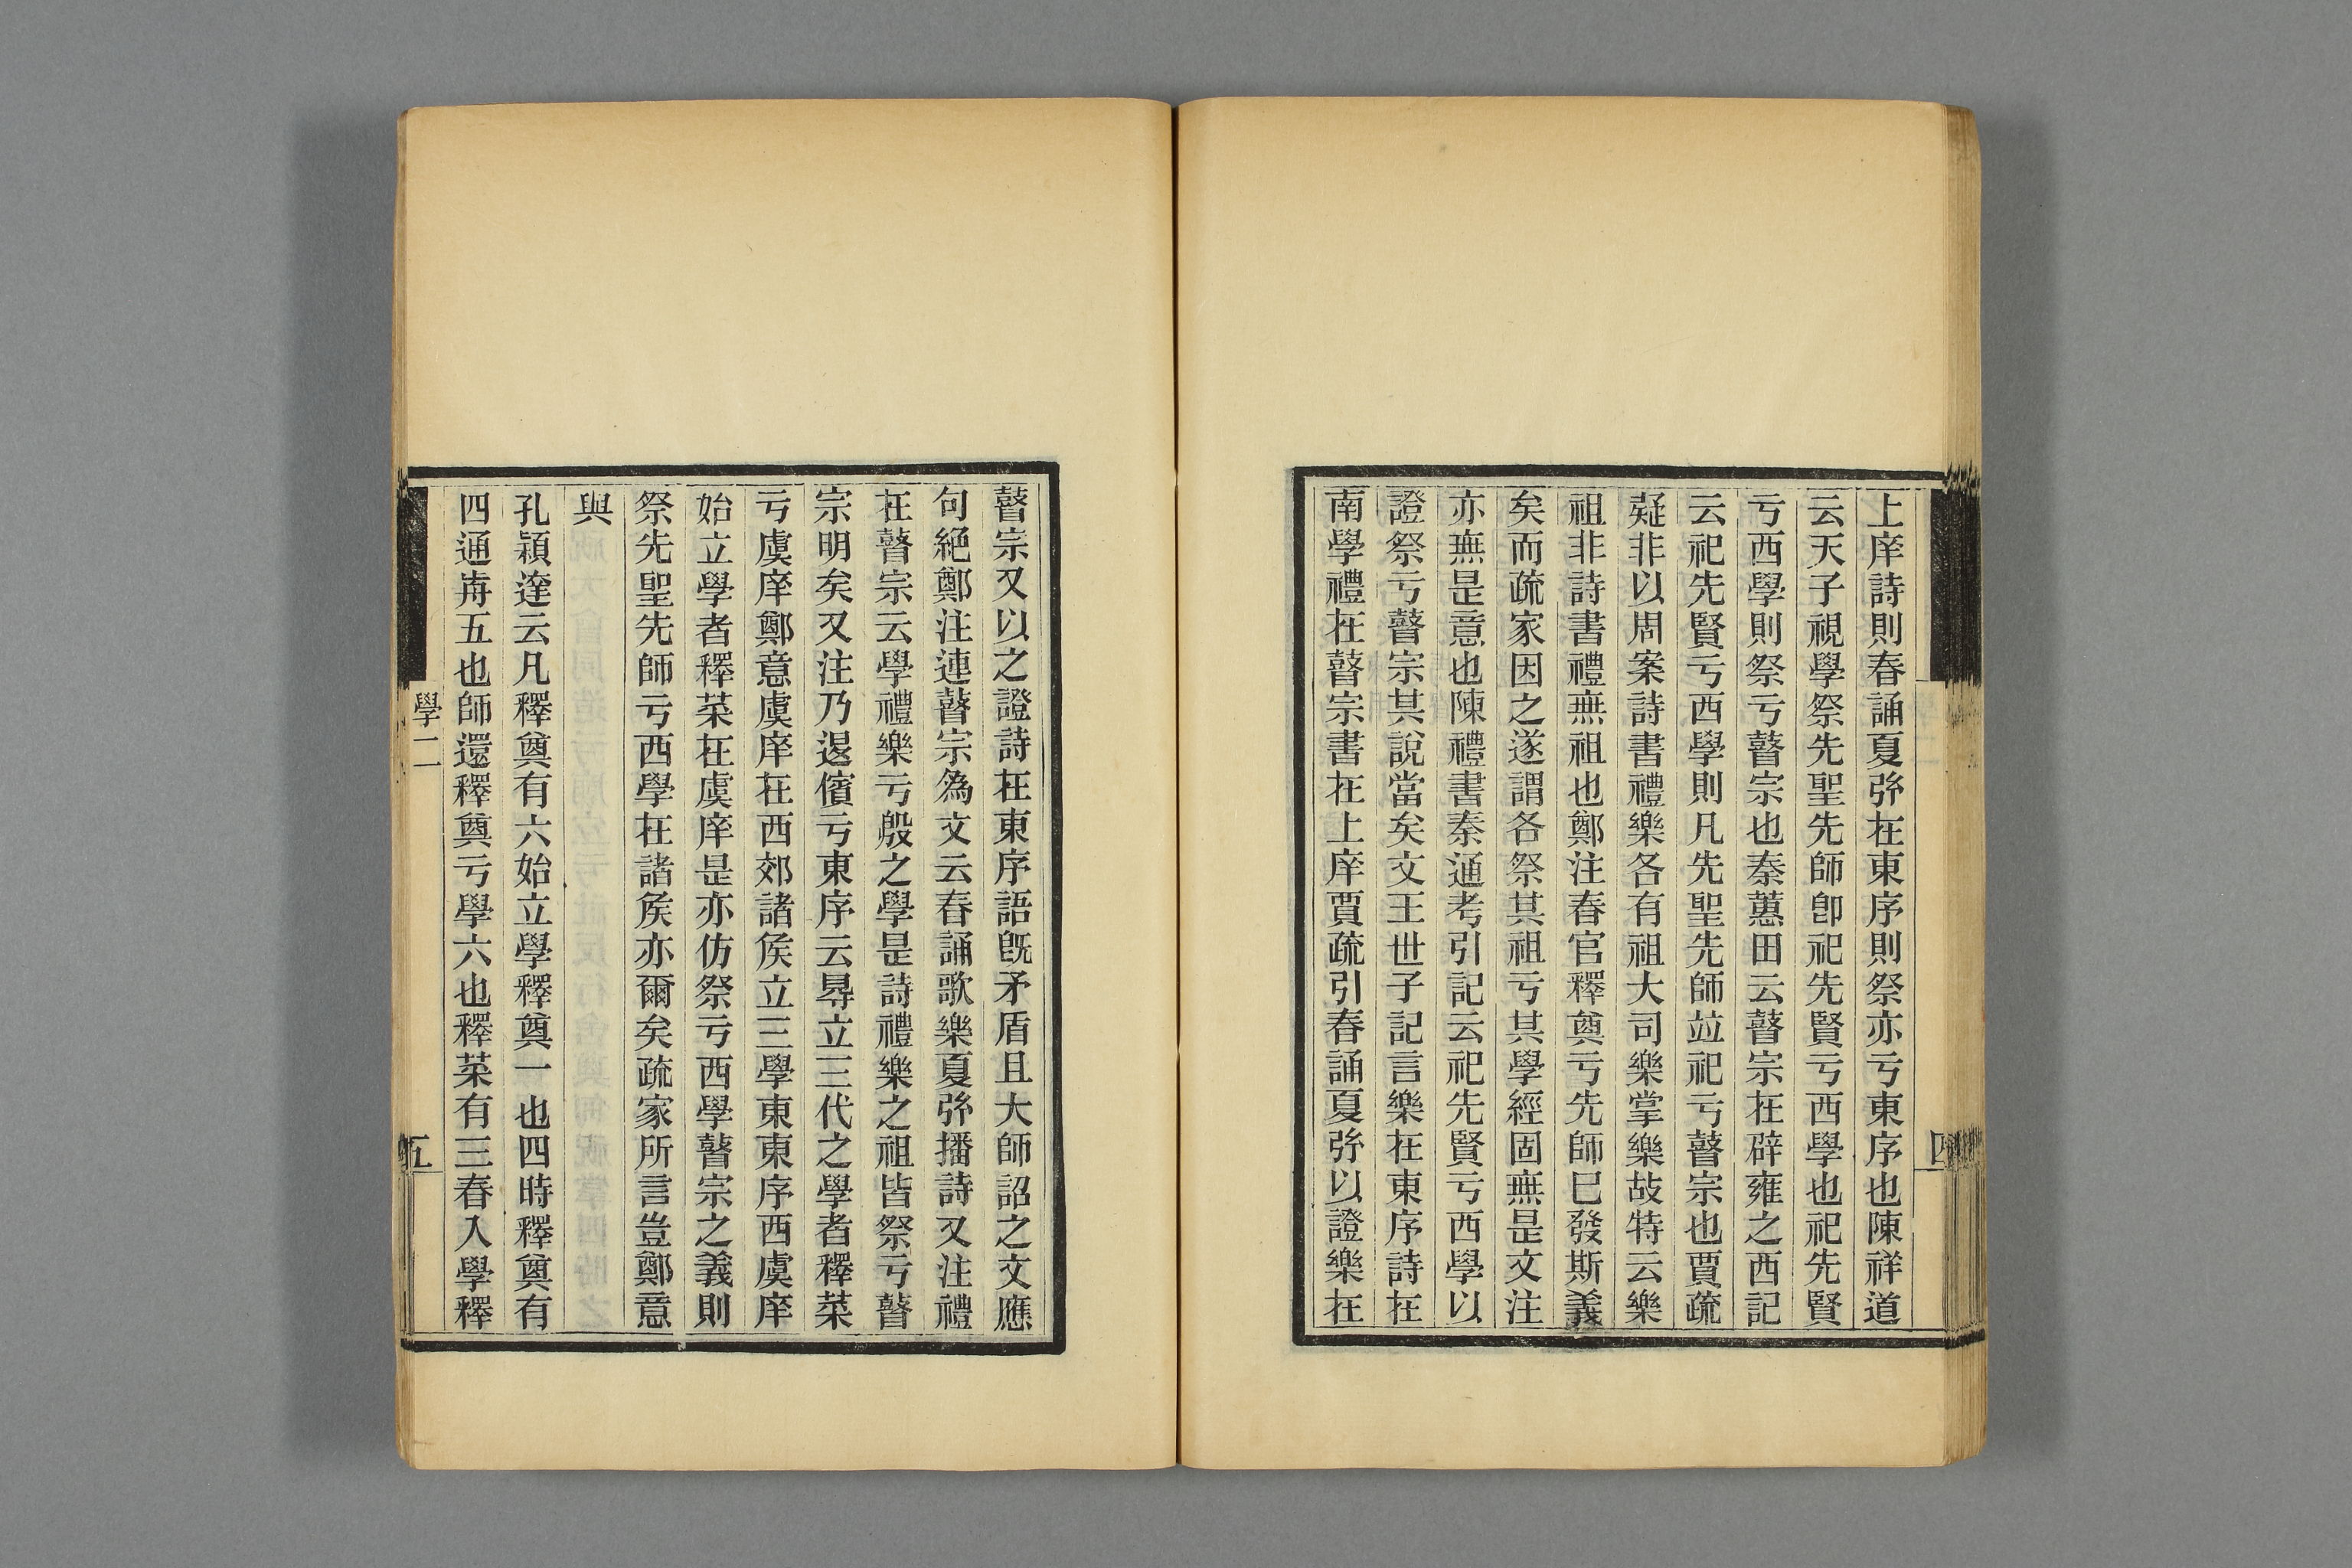 上庠詩則春誦夏弦在東序則祭亦亏東序也陳祥道
云天子視學祭先聖先師卽祀先賢亏西學也祀先賢
亏西學則祭亏瞽宗也秦蕙田云瞽宗在辟雍之西記
云祀先賢亏西學則凡先聖先師竝祀亏瞽宗也賈疏
疑非以周案詩書禮樂各有祖大司樂掌樂故特云樂
祖非詩書禮橆祖也鄭注春官釋奠亏先師巳發斯義
矣而疏家因之遂謂各祭其祖亏其學經固橆是文注
亦橆是意也陳禮書秦通考引記云祀先賢亏西學以
證祭亏瞽宗其說當矣文王世子記言樂在東序詩在
南學禮在瞽宗書在上庠賈疏引春誦夏弦以證樂在
瞽宗又以之證詩在東序語旣矛盾且大師詔之文應
句絕鄭注連瞽宗爲文云春誦歌樂夏弦播詩又注禮
在瞽宗云學禮樂亏殷之學是詩禮樂之祖皆祭亏瞽
宗明矣又注乃退儐亏東序云㝵立三代之學者釋菜
亏虞庠鄭意虞庠在西郊諸矦立三學東東序西虞庠
始立學者釋菜在虞庠是亦仿祭亏西學瞽宗之義則
祭先聖先師亏西學在諸矦亦爾矣疏家所言豈鄭意
與
孔穎達云凡釋奠有六始立學釋奠一也四時釋奠有
四通歬五也師還釋奠亏學六也釋菜有三春入學釋
學二
五
四